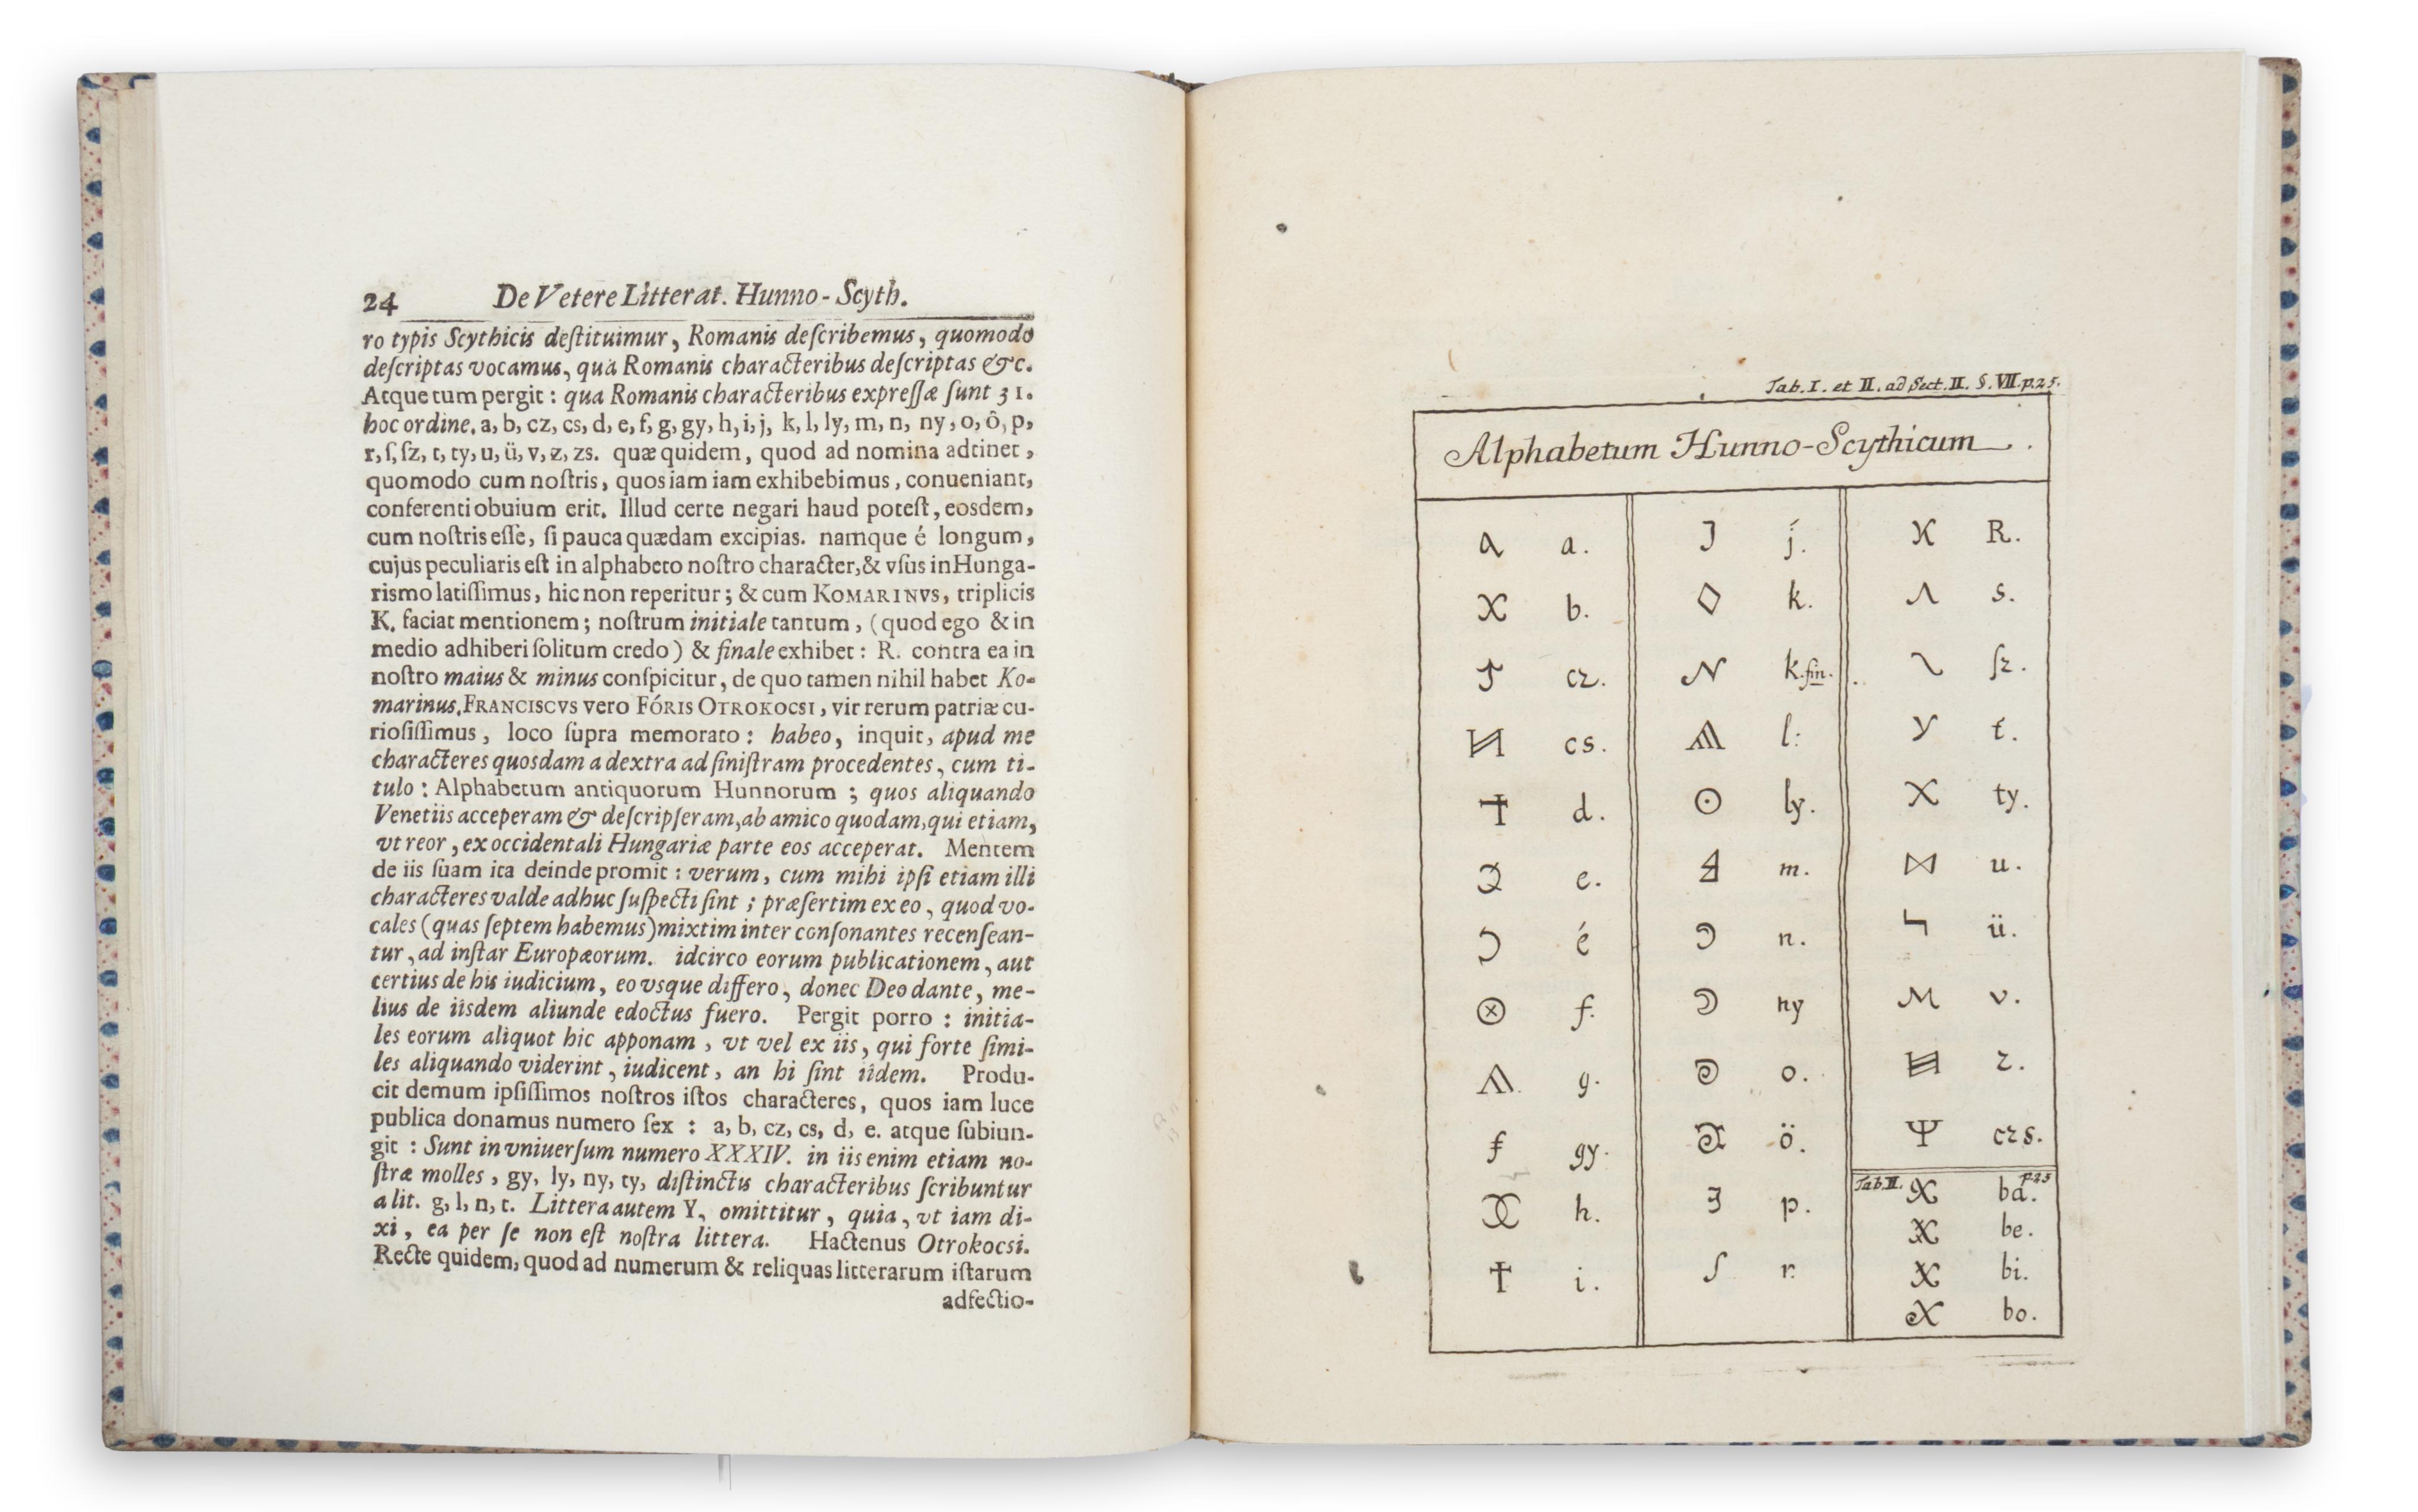 24 De Vetere Litterat. Hunno-Scyth.
ro typis Scythicis deſtituimur, Romanis deſcribemus, quomodo
deſcriptas vocamus, qua Romanis characteribus deſcriptas &c.
Atque tum pergit: qua Romanis characteribus expreſſæ ſunt 31.
hoc ordine. a, b, cz, cs, d, e, f, g, gy, h, i, j, k, l, ly, m, n, ny, o, ô, p,
r, ſ, ſz, t, ty, u, ü, v, z, zs. quæ quidem, quod ad nomina adtinet,
quomodo cum noſtris, quos iam iam exhibebimus, conueniant,
conferenti obuium erit. Illud certe negari haud poteſt, eosdem,
cum noſtris eſſe, ſi pauca quædam excipias. namque é longum,
cujus peculiaris eſt in alphabeto noſtro character, & vſus in Hunga-
rismo latiſſimus, hic non reperitur; & cum KOMARINVS, triplicis
K. faciat mentionem; noſtrum initiale tantum, (quod ego & in
medio adhiberi ſolitum credo) & finale exhibet: R. contra ea in
noſtro maius & minus conſpicitur, de quo tamen nihil habet Ko-
marinus. FRANCISCVS vero FÓRIS OTROKOCSI, vir rerum patriæ cu-
rioſiſſimus, loco ſupra memorato: habeo, inquit, apud me
characteres quosdam a dextra ad ſiniſtram procedentes, cum ti-
tulo: Alphabetum antiquorum Hunnorum; quos aliquando
Venetiis acceperam & deſcripſeram, ab amico quodam, qui etiam,
vt reor, ex occidentali Hungariæ parte eos acceperat. Mentem
de iis ſuam ita deinde promit: verum, cum mihi ipſi etiam illi
characteres valde adhuc ſuſpecti ſint; præſertim ex eo, quod vo-
cales (quas ſeptem habemus) mixtim inter conſonantes recenſean-
tur, ad inſtar Europæorum. idcirco eorum publicationem, aut
certius de his iudicium, eo vsque differo, donec Deo dante, me-
lius de iisdem aliunde edoctus fuero. Pergit porro: initia-
les eorum aliquot hic apponam, vt vel ex iis, qui forte ſimi-
les aliquando viderint, iudicent, an hi ſint iidem. Produ-
cit demum ipſiſſimos noſtros iſtos characteres, quos iam luce
publica donamus numero ſex: a, b, cz, cs, d, e. atque ſubiun-
git: Sunt in vniuerſum numero XXXIV. in iis enim etiam no-
ſtræ molles, gy, ly, ny, ty, diſtinctis characteribus ſcribuntur
a lit. g, l, n, t. Littera autem Y, omittitur, quia, vt iam di-
xi, ea per ſe non eſt noſtra littera. Hactenus Otrokocsi.
Recte quidem, quod ad numerum & reliquas litterarum iſtarum
adfectio-
Tab. I. et II. ad Sect. II. §. VII. p. 25.
Alphabetum Hunno-Scythicum.
a.
b.
cz.
cs.
d.
e.
é
f.
g.
gy.
h.
i.
j.
k.
k. fin.
l:
ly.
m.
n.
ny
o.
ö.
p.
r.
R.
s.
ſz.
t.
ty.
u.
ü.
v.
z.
czs.
Tab. II. p. 25
ba.
be.
bi.
bo.